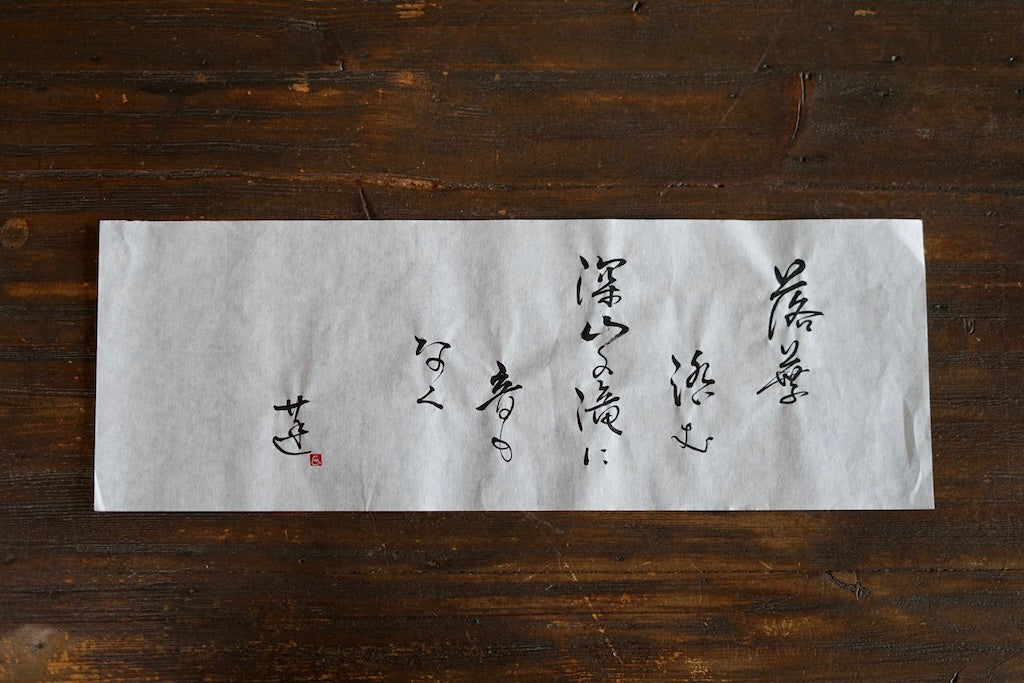 落葉
浴む
深山の滝に
音も
なく
蓮